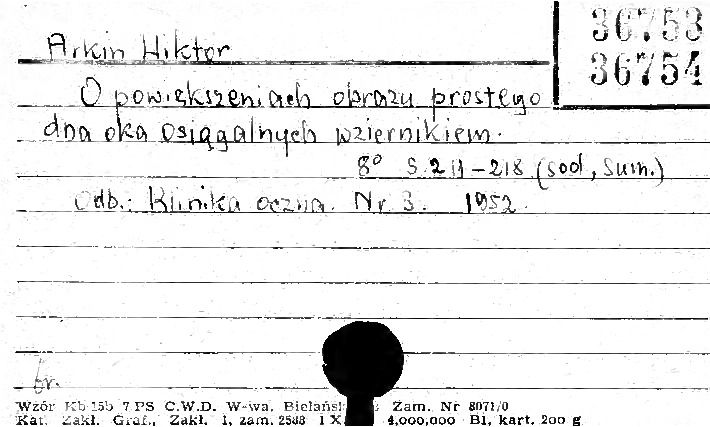 36753
36754
Arkin Wiktor
O powiększeniach obrazu prostego
dna oka osiągalnych wziernikiem.
8° S. 211-218 (sod, Sum.)
Odb.: Klinika oczna. Nr 3. 1952.
br.
Wzór Kb 15b 7 PS C.W.D. W-wa, Zam. Nr 8071/0
Kat. Zakł. Graf., Zakł. 1, zam. 2588 1 X. 4,000,000 B1, kart. 200 g